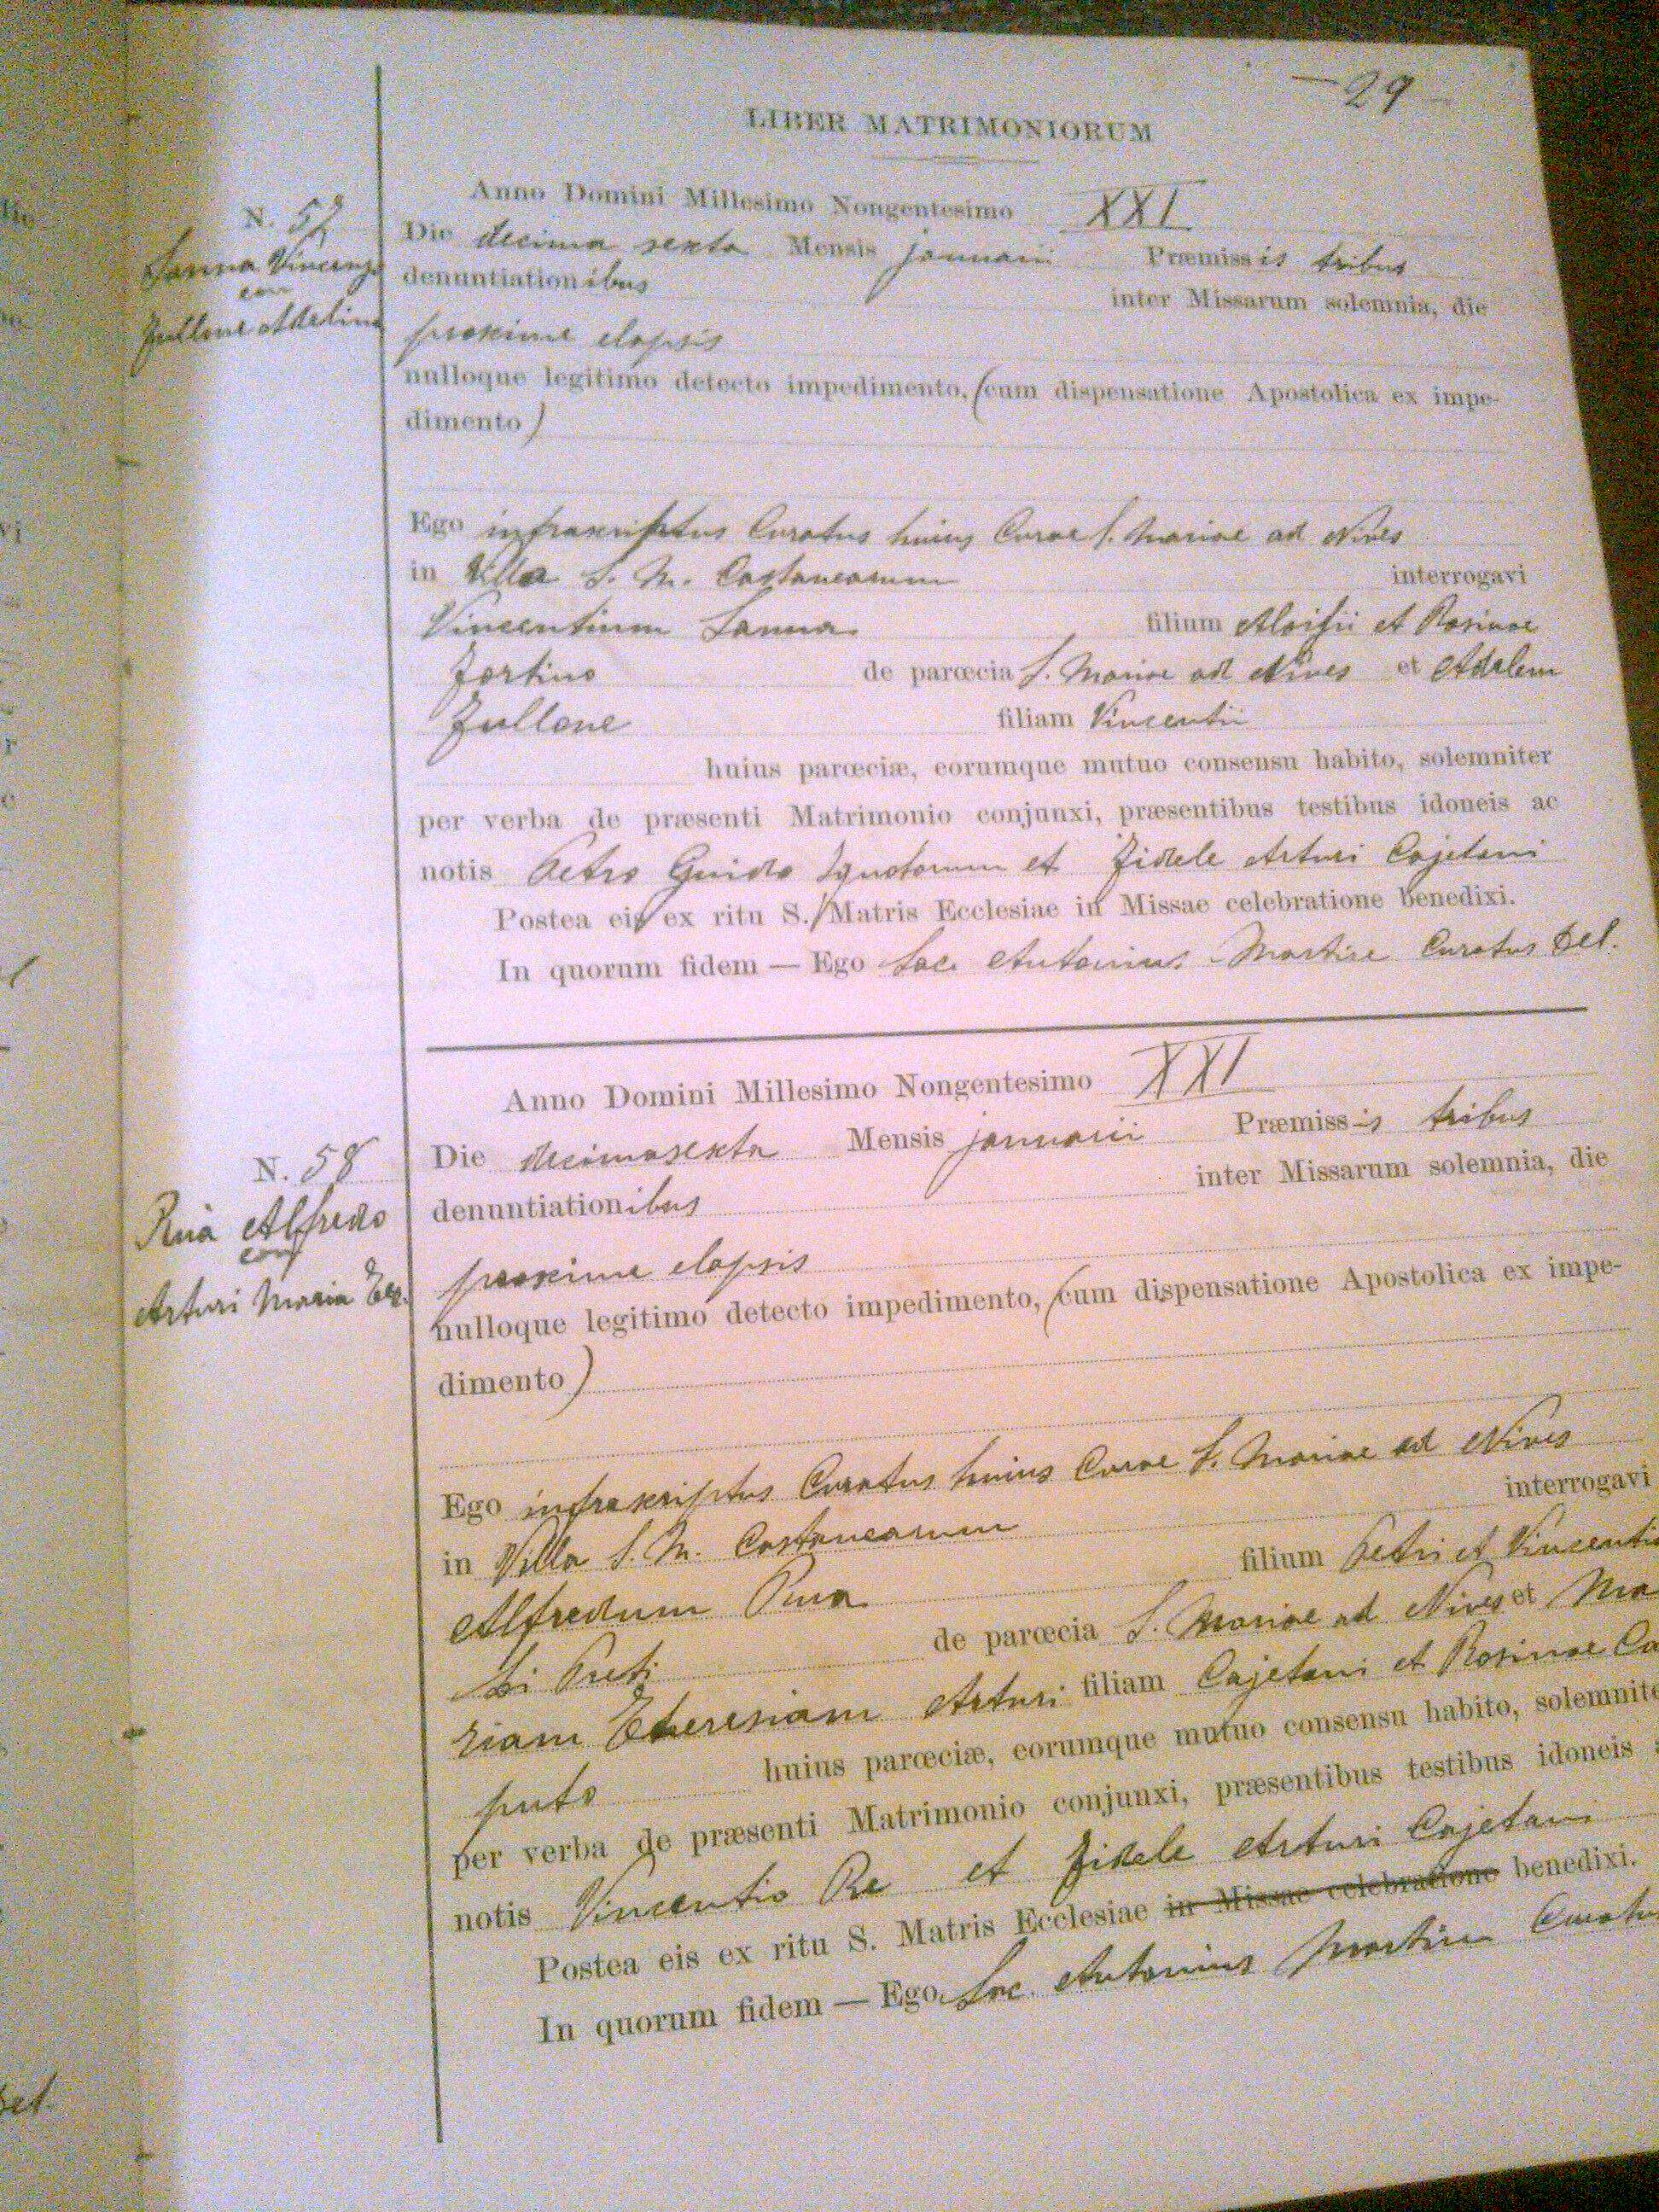 29
LIBER MATRIMONIORUM
Anno Domini Millesimo Nongentesimo XXI
N. 57
Die decima sexta Mensis januarii Præmissis tribus
Sanna Vincenzo
denuntiationibus inter Missarum solemnia, die
con
Fullone Adelina
proxime elapsis
nulloque legitimo detecto impedimento, (cum dispensatione Apostolica ex impe-
dimento)
Ego infrascriptus Curatus huius Curae S. Mariae ad Nives
in Villa S. M. Castanearum interrogavi
Vincentium Sanna filium Aloisii et Rosinae
Fortino de parœcia S. Mariae ad Nives et Adelem
Fullone filiam Vincentii
huius parœciæ, eorumque mutuo consensu habito, solemniter
per verba de præsenti Matrimonio conjunxi, præsentibus testibus idoneis ac
notis Petro Guido Ignotorum et Fidele Arturi Cajetani
Postea eis ex ritu S. Matris Ecclesiae in Missae celebratione benedixi.
In quorum fidem — Ego Sac. Antonius Martire Curatus Del.
Anno Domini Millesimo Nongentesimo XXI
N. 58
Die decimasexta Mensis januarii Præmissis tribus
Rua Alfredo
denuntiationibus inter Missarum solemnia, die
con
Arturi Maria
proxime elapsis
nulloque legitimo detecto impedimento, (cum dispensatione Apostolica ex impe-
dimento)
Ego infrascriptus Curatus huius Curae S. Mariae ad Nives
in Villa S. M. Castanearum interrogavi
Alfredum Rua filium Petri et Vincenti
Li Preti de parœcia S. Mariae ad Nives et Ma
riam Etheresiam Arturi filiam Cajetani et Rosinae Ca
puto huius parœciæ, eorumque mutuo consensu habito, solemnite
per verba de præsenti Matrimonio conjunxi, præsentibus testibus idoneis a
notis Vincentio Re et Fidele Arturi Cajetani
Postea eis ex ritu S. Matris Ecclesiae in Missae celebratione benedixi.
In quorum fidem — Ego Sac. Antonius Martire Curatu